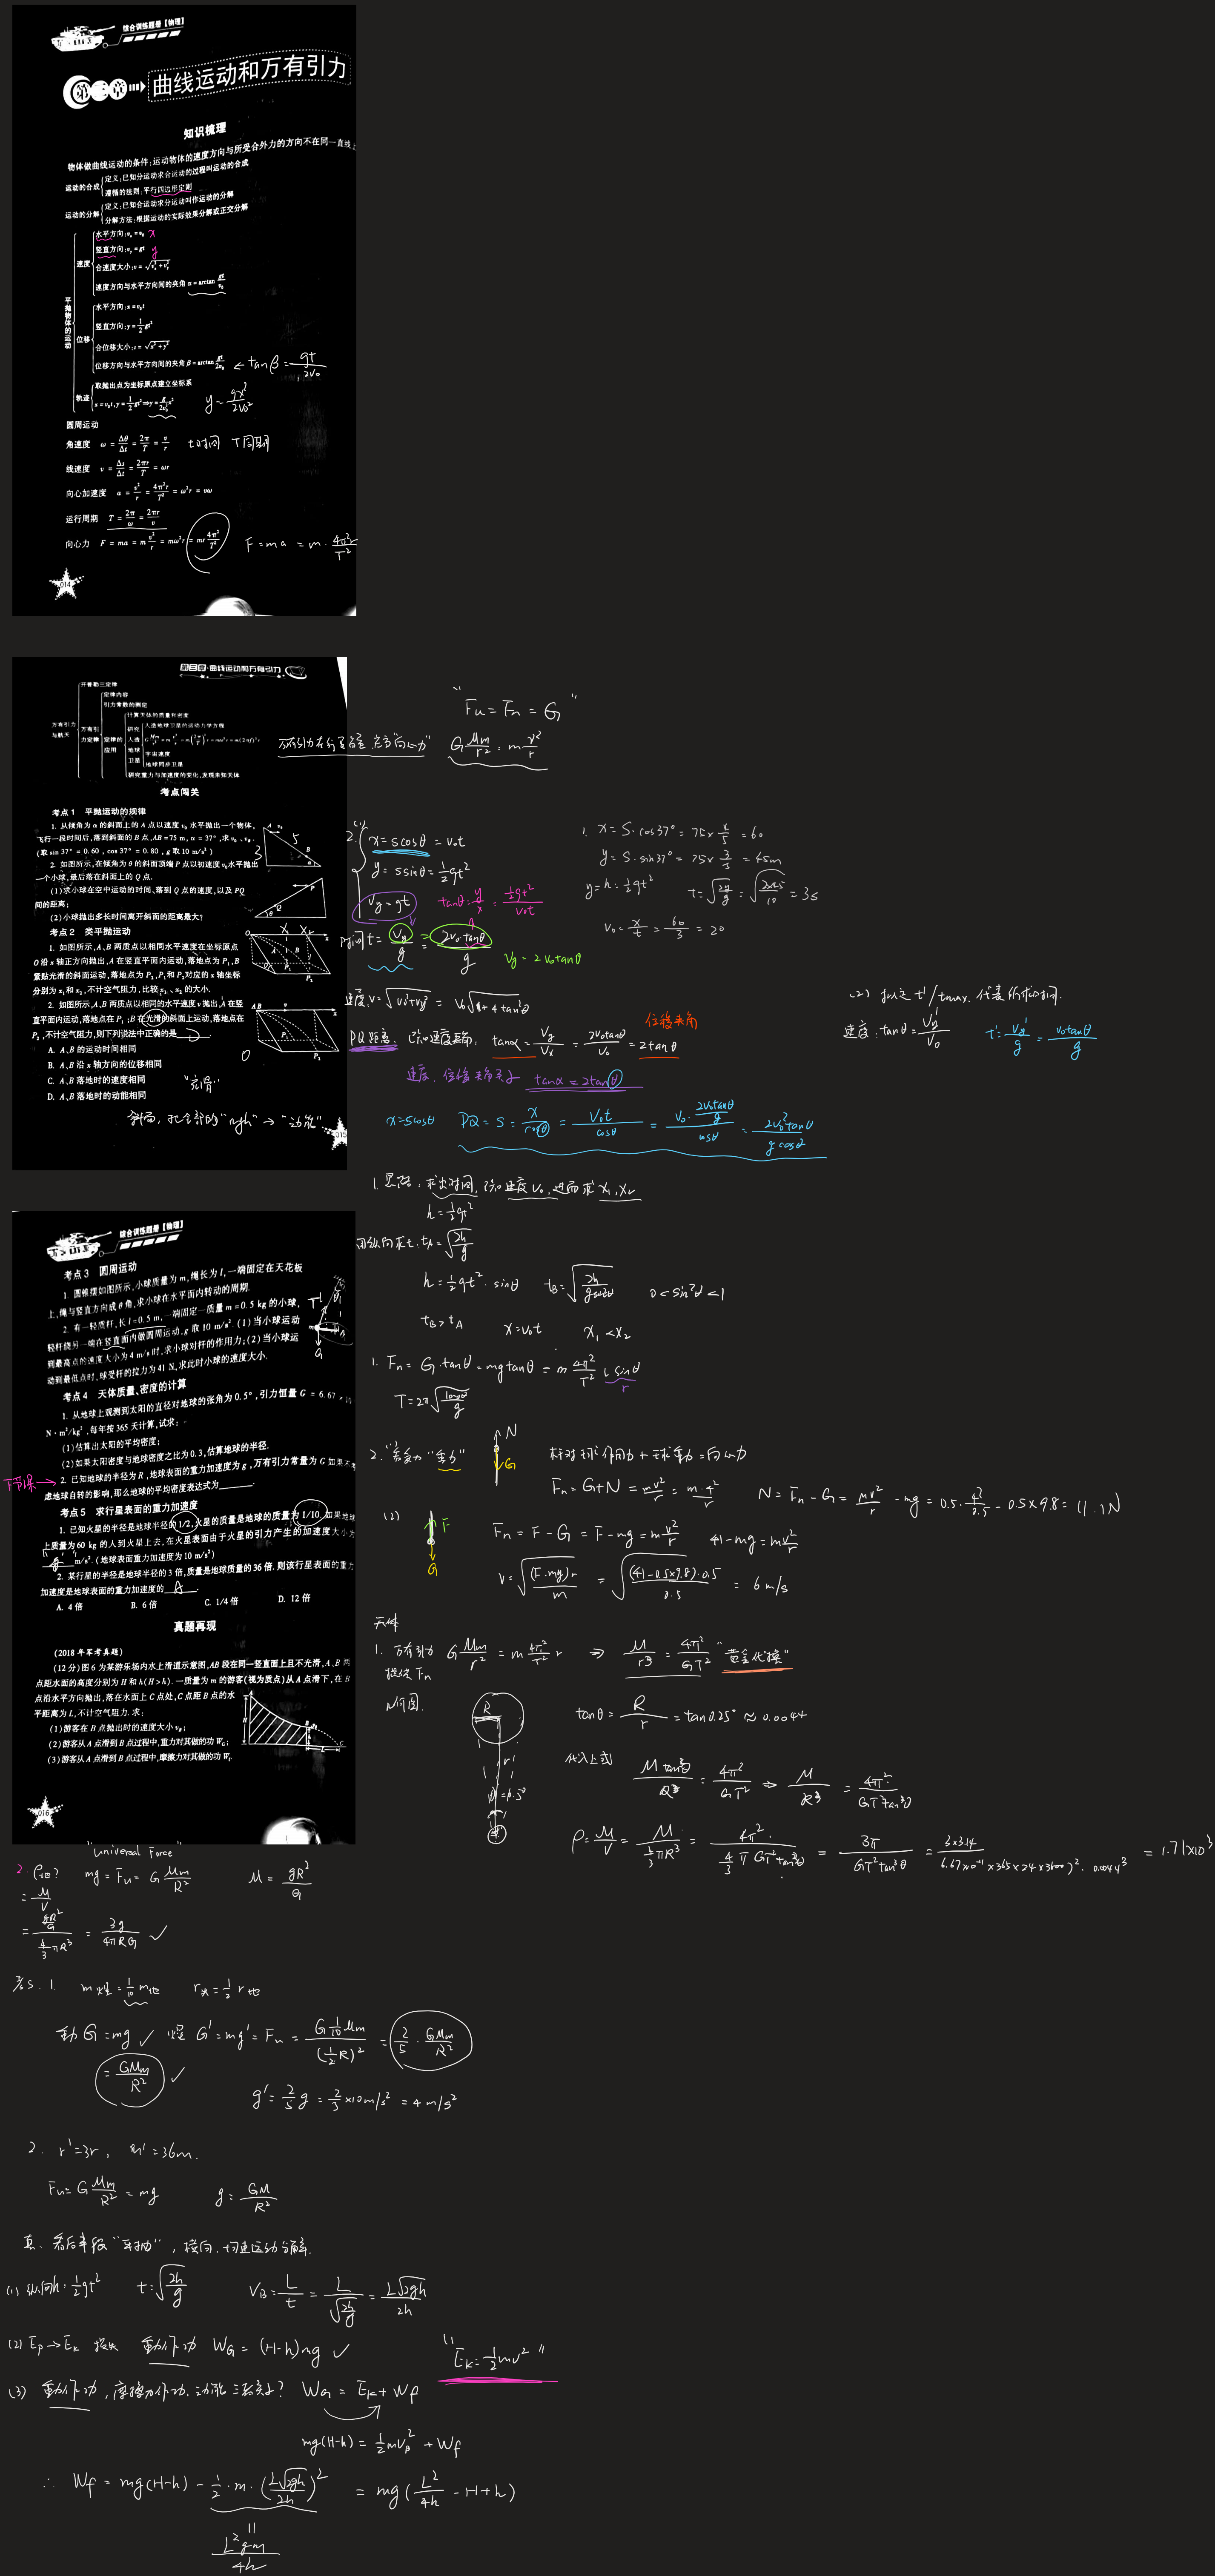 综合训练题册【物理】
曲线运动和万有引力
知识梳理
物体做曲线运动的条件:运动物体的速度方向与所受合外力的方向不在同一直线上
运动的合成
定义:已知分运动求合运动的过程叫运动的合成
遵循的法则:平行四边形定则
运动的分解
定义:已知合运动求分运动叫作运动的分解
分解方法:根据运动的实际效果分解或正交分解
平抛物体的运动
速度
水平方向:vₓ=v₀ x
竖直方向:v_y=gt y
合速度大小:v=√(vₓ²+v_y²)
速度方向与水平方向间的夹角 α=arctan gt/v₀
位移
水平方向:x=v₀t
竖直方向:y=1/2 gt²
合位移大小:s=√(x²+y²)
位移方向与水平方向间的夹角 β=arctan gt/2v₀ ← tanβ=gt/2v₀
轨迹
取抛出点为坐标原点建立坐标系
x=v₀t,y=1/2 gt²⇒y=g/2v₀² x² y=gx²/2v₀²
圆周运动
角速度 ω=Δθ/Δt=2π/T=v/r t时间 T周期
线速度 v=Δs/Δt=2πr/T=ωr
向心加速度 a=v²/r=4π²r/T²=ω²r=vω
运行周期 T=2π/ω=2πr/v
向心力 F=ma=m v²/r=mω²r=mr 4π²/T² F=ma=m·4π²r/T²
014
曲线运动和万有引力
万有引力与航天
开普勒三定律
万有引力定律
定律内容
引力常数的测定
定律的应用
计算天体的质量和密度
研究人造地球卫星
人造地球卫星的运动力学方程
宇宙速度
地球同步卫星
研究重力与加速度的变化,发现未知天体
"Fu=Fn=G"
G Mm/r²=m v²/r
考点闯关
考点1 平抛运动的规律
1. 从倾角为 α 的斜面上的 A 点以速度 v₀ 水平抛出一个物体,
飞行一段时间后,落到斜面的 B 点,AB=75 m,α=37°,求 v₀、v_B.
(取 sin 37°=0.60,cos 37°=0.80,g 取 10 m/s²)
2. 如图所示,在倾角为 θ 的斜面顶端 P 点以初速度 v₀ 水平抛出
一个小球,最后落在斜面上的 Q 点.
(1)求小球在空中运动的时间、落到 Q 点的速度,以及 PQ
间的距离;
(2)小球抛出多长时间离开斜面的距离最大?
考点2 类平抛运动
1. 如图所示,A、B 两质点以相同水平速度在坐标原点
O 沿 x 轴正方向抛出,A 在竖直平面内运动,落地点为 P₁,B
紧贴光滑的斜面运动,落地点为 P₂,P₁和 P₂对应的 x 轴坐标
分别为 x₁和 x₂,不计空气阻力,比较 x₁、x₂ 的大小.
2. 如图所示,A、B 两质点以相同的水平速度 v 抛出,A 在竖
直平面内运动,落地点在 P₁;B 在光滑的斜面上运动,落地点在
P₂,不计空气阻力,则下列说法中正确的是 D.
A. A、B 的运动时间相同
B. A、B 沿 x 轴方向的位移相同
C. A、B 落地时的速度相同
D. A、B 落地时的动能相同
"光滑"
斜面,把全部的"mgh"→"动能"
015
2. (1) x=scosθ=v₀t
y=ssinθ=1/2 gt²
Vy=gt tanθ=y/x=1/2 gt²/v₀t
时间t=Vy/g=2v₀·tanθ/g Vy=2v₀tanθ
速度V=√(v₀²+vy²)=V₀√(1+4tan²θ)
PQ距离: tanα=Vy/Vx=2v₀tanθ/v₀=2tanθ 位移夹角
速度、位移夹角关系 tanα=2tanθ
x=scosθ PQ=S=x/cosθ=V₀t/cosθ=V₀·2v₀tanθ/g/cosθ=2v₀²tanθ/gcosθ
1. x=S·cos37°=75×4/5=60
y=S·sin37°=75×3/5=45m
y=h=1/2 gt² t=√(2y/g)=√(2×45/10)=3s
v₀=x/t=60/3=20
(2) 拟定t'/tmax,代表所求时间.
速度:tanθ=Vy'/V₀ t'=Vy'/g=v₀tanθ/g
1. 思路:求出时间,已知速度v₀,进而求x₁,x₂
h=1/2 gt²
用纵向求t:tA=√(2h/g)
h=1/2 gt²·sinθ tB=√(2h/gsin²θ) 0<sin²θ<1
tB>tA x=v₀t x₁<x₂
综合训练题册【物理】
考点3 圆周运动
1. 圆锥摆如图所示,小球质量为 m,绳长为 l,一端固定在天花板
上,绳与竖直方向成 θ 角,求小球在水平面内转动的周期.
2. 有一轻质杆,长 l=0.5 m,一端固定一质量 m=0.5 kg 的小球,
轻杆绕另一端在竖直面内做圆周运动,g 取 10 m/s².(1)当小球运动
到最高点的速度大小为 4 m/s 时,求小球对杆的作用力;(2)当小球运
动到最低点时,球受杆的拉力为 41 N,求此时小球的速度大小.
考点4 天体质量、密度的计算
1. 从地球上观测到太阳的直径对地球的张角为 0.5°,引力恒量 G=6.67×10
N·m²/kg²,每年按 365 天计算,试求:
(1)估算出太阳的平均密度;
(2)如果太阳密度与地球密度之比为 0.3,估算地球的半径.
下节课→ 2. 已知地球的半径为 R,地球表面的重力加速度为 g,万有引力常量为 G 如果不考
虑地球自转的影响,那么地球的平均密度表达式为____.
考点5 求行星表面的重力加速度
1. 已知火星的半径是地球半径的 1/2,火星的质量是地球的质量为 1/10,如果地球
上质量为 60 kg 的人到火星上去,在火星表面由于火星的引力产生的加速度大小为
4 m/s².(地球表面重力加速度为 10 m/s²)
2. 某行星的半径是地球半径的 3 倍,质量是地球质量的 36 倍.则该行星表面的重力
加速度是地球表面的重力加速度的 A.
A. 4 倍 B. 6 倍 C. 1/4 倍 D. 12 倍
真题再现
(2018 年军考真题)
(12 分)图 6 为某游乐场内水上滑道示意图,AB 段在同一竖直面上且不光滑,A、B 两
点距水面的高度分别为 H 和 h(H>h).一质量为 m 的游客(视为质点)从 A 点滑下,在 B
点沿水平方向抛出,落在水面上 C 点处,C 点距 B 点的水
平距离为 L,不计空气阻力.求:
(1)游客在 B 点抛出时的速度大小 v_B;
(2)游客从 A 点滑到 B 点过程中,重力对其做的功 W_G;
(3)游客从 A 点滑到 B 点过程中,摩擦力对其做的功 W_f.
016
1. Fn=G·tanθ=mgtanθ=m 4π²/T² l sinθ
r
T=2π√(lcosθ/g)
2. (1) "重力" N G 杆对球作用力+球重力=向心力
Fn=G+N=mv²/r=m·4²/r N=Fn-G=mv²/r-mg=0.5·4²/0.5-0.5×9.8=11.1N
(2) F G Fn=F-G=F-mg=m v²/r 41-mg=mv²/r
V=√((F-mg)r/m)=√((41-0.5×9.8)·0.5/0.5)=6m/s
天体
1. 万有引力 G Mm/r²=m 4π²/T² r ⇒ M/r³=4π²/GT² "黄金代换"
提供Fn
几何图. R r θ=0.5° tanθ=R/r=tan0.25°≈0.0044
代入上式 M tan³θ/R³=4π²/GT² ⇒ M/R³=4π²/GT²tan³θ
ρ=M/V=M/(4/3 πR³)=4π²/(4/3 π GT²tan³θ)=3π/GT²tan³θ=3×3.14/6.67×10⁻¹¹×365×24×3600)²·0.0044³=1.71×10³
"Universal Force"
2. ρ地? mg=Fu=G Mm/R² M=gR²/G
=M/V
=gR²/G/(4/3 πR³)=3g/4πRG ✓
考5. 1. m火星=1/10 m地 r火=1/2 r地
重力G=mg ✓ 火星 G'=mg'=Fu=G 1/10 Mm/(1/2 R)²=2/5·GMm/R²
=GMm/R² ✓
g'=2/5 g=2/5×10m/s²=4m/s²
2. r'=3r, m'=36m.
Fu=G Mm/R²=mg g=GM/R²
真、看后半段"平抛",横向、匀速运动分解.
(1) 纵向h=1/2 gt² t=√(2h/g) VB=L/t=L/√(2h/g)=L√2gh/2h
(2) Ep→Ek 损失 重力作功 WG=(H-h)mg ✓ "Ek=1/2 mv²"
(3) 重力作功,摩擦力作功,动能三者关系? WG=Ek+Wf
mg(H-h)=1/2 mVB²+Wf
∴ Wf=mg(H-h)-1/2·m·(L√2gh/2h)²=mg(L²/4h-H+h)
L²gm/4h